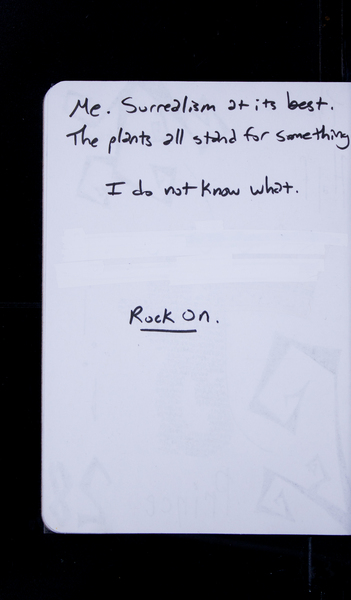 Me. Surrealism at its best.
The plants all stand for something
I do not know what.
Rock On.